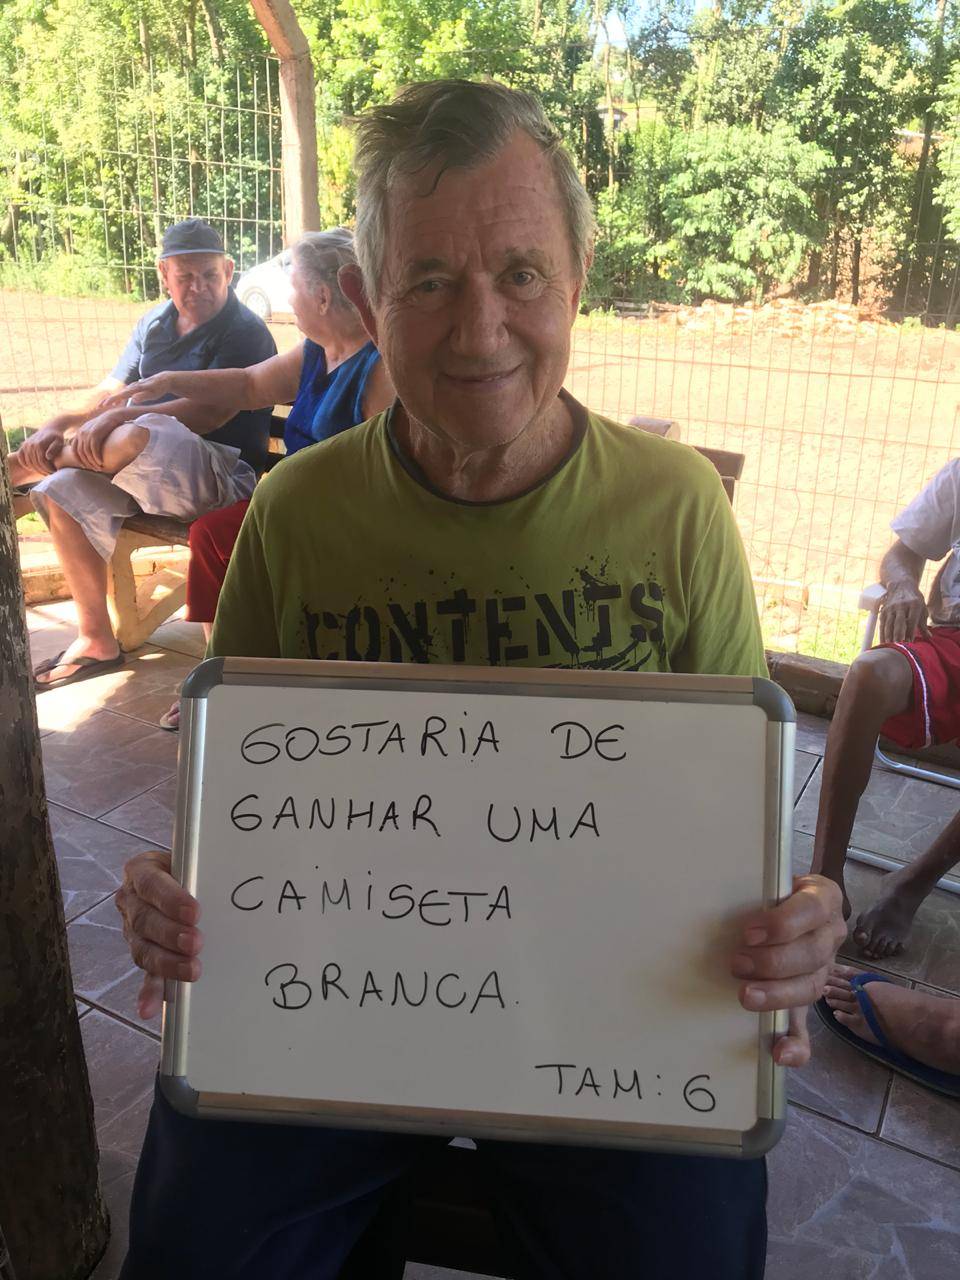 CONTENTS
GOSTARIA DE
GANHAR UMA
CAMISETA
BRANCA.
TAM: G